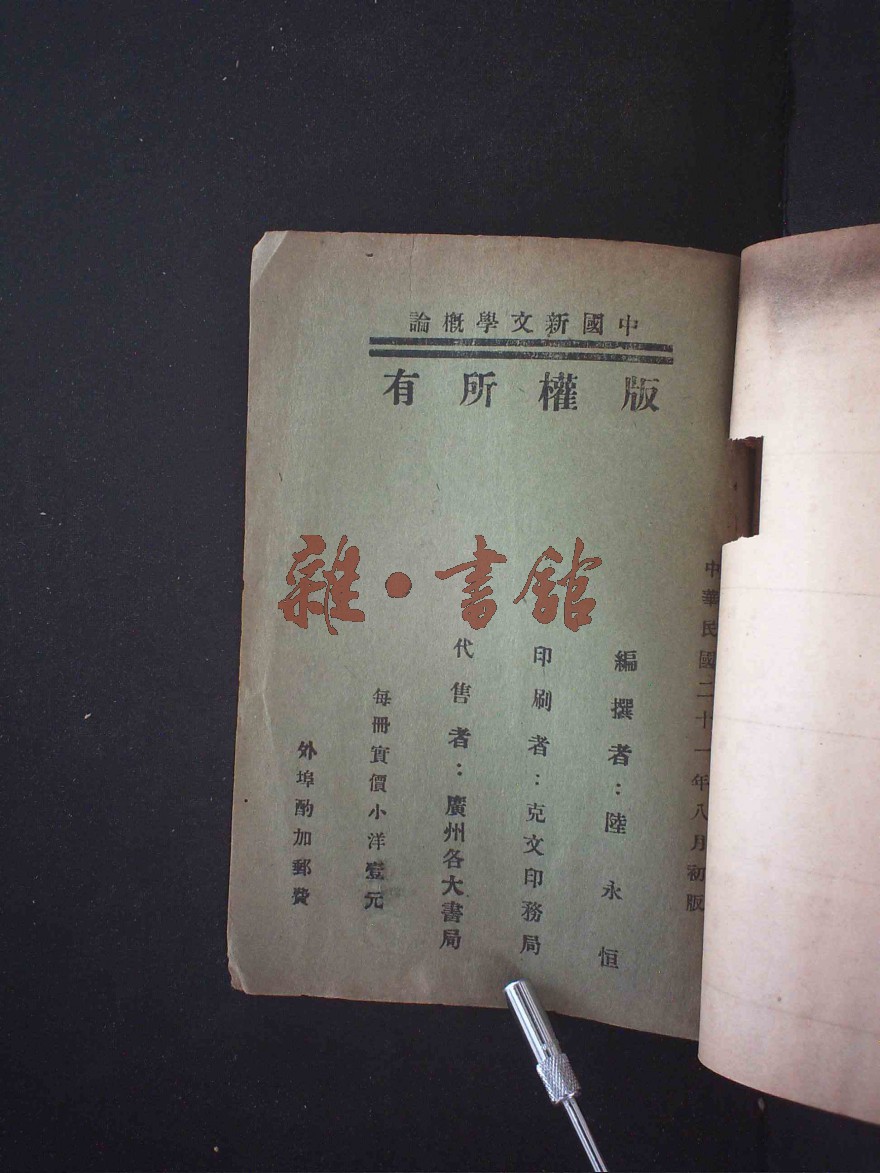 中國新文學概論
版權所有
中華民國二十一年八月初版
編撰者：陸永恒
印刷者：克文印務局
代售者：廣州各大書局
每冊實價小洋壹元
外埠酌加郵費
雜·書館